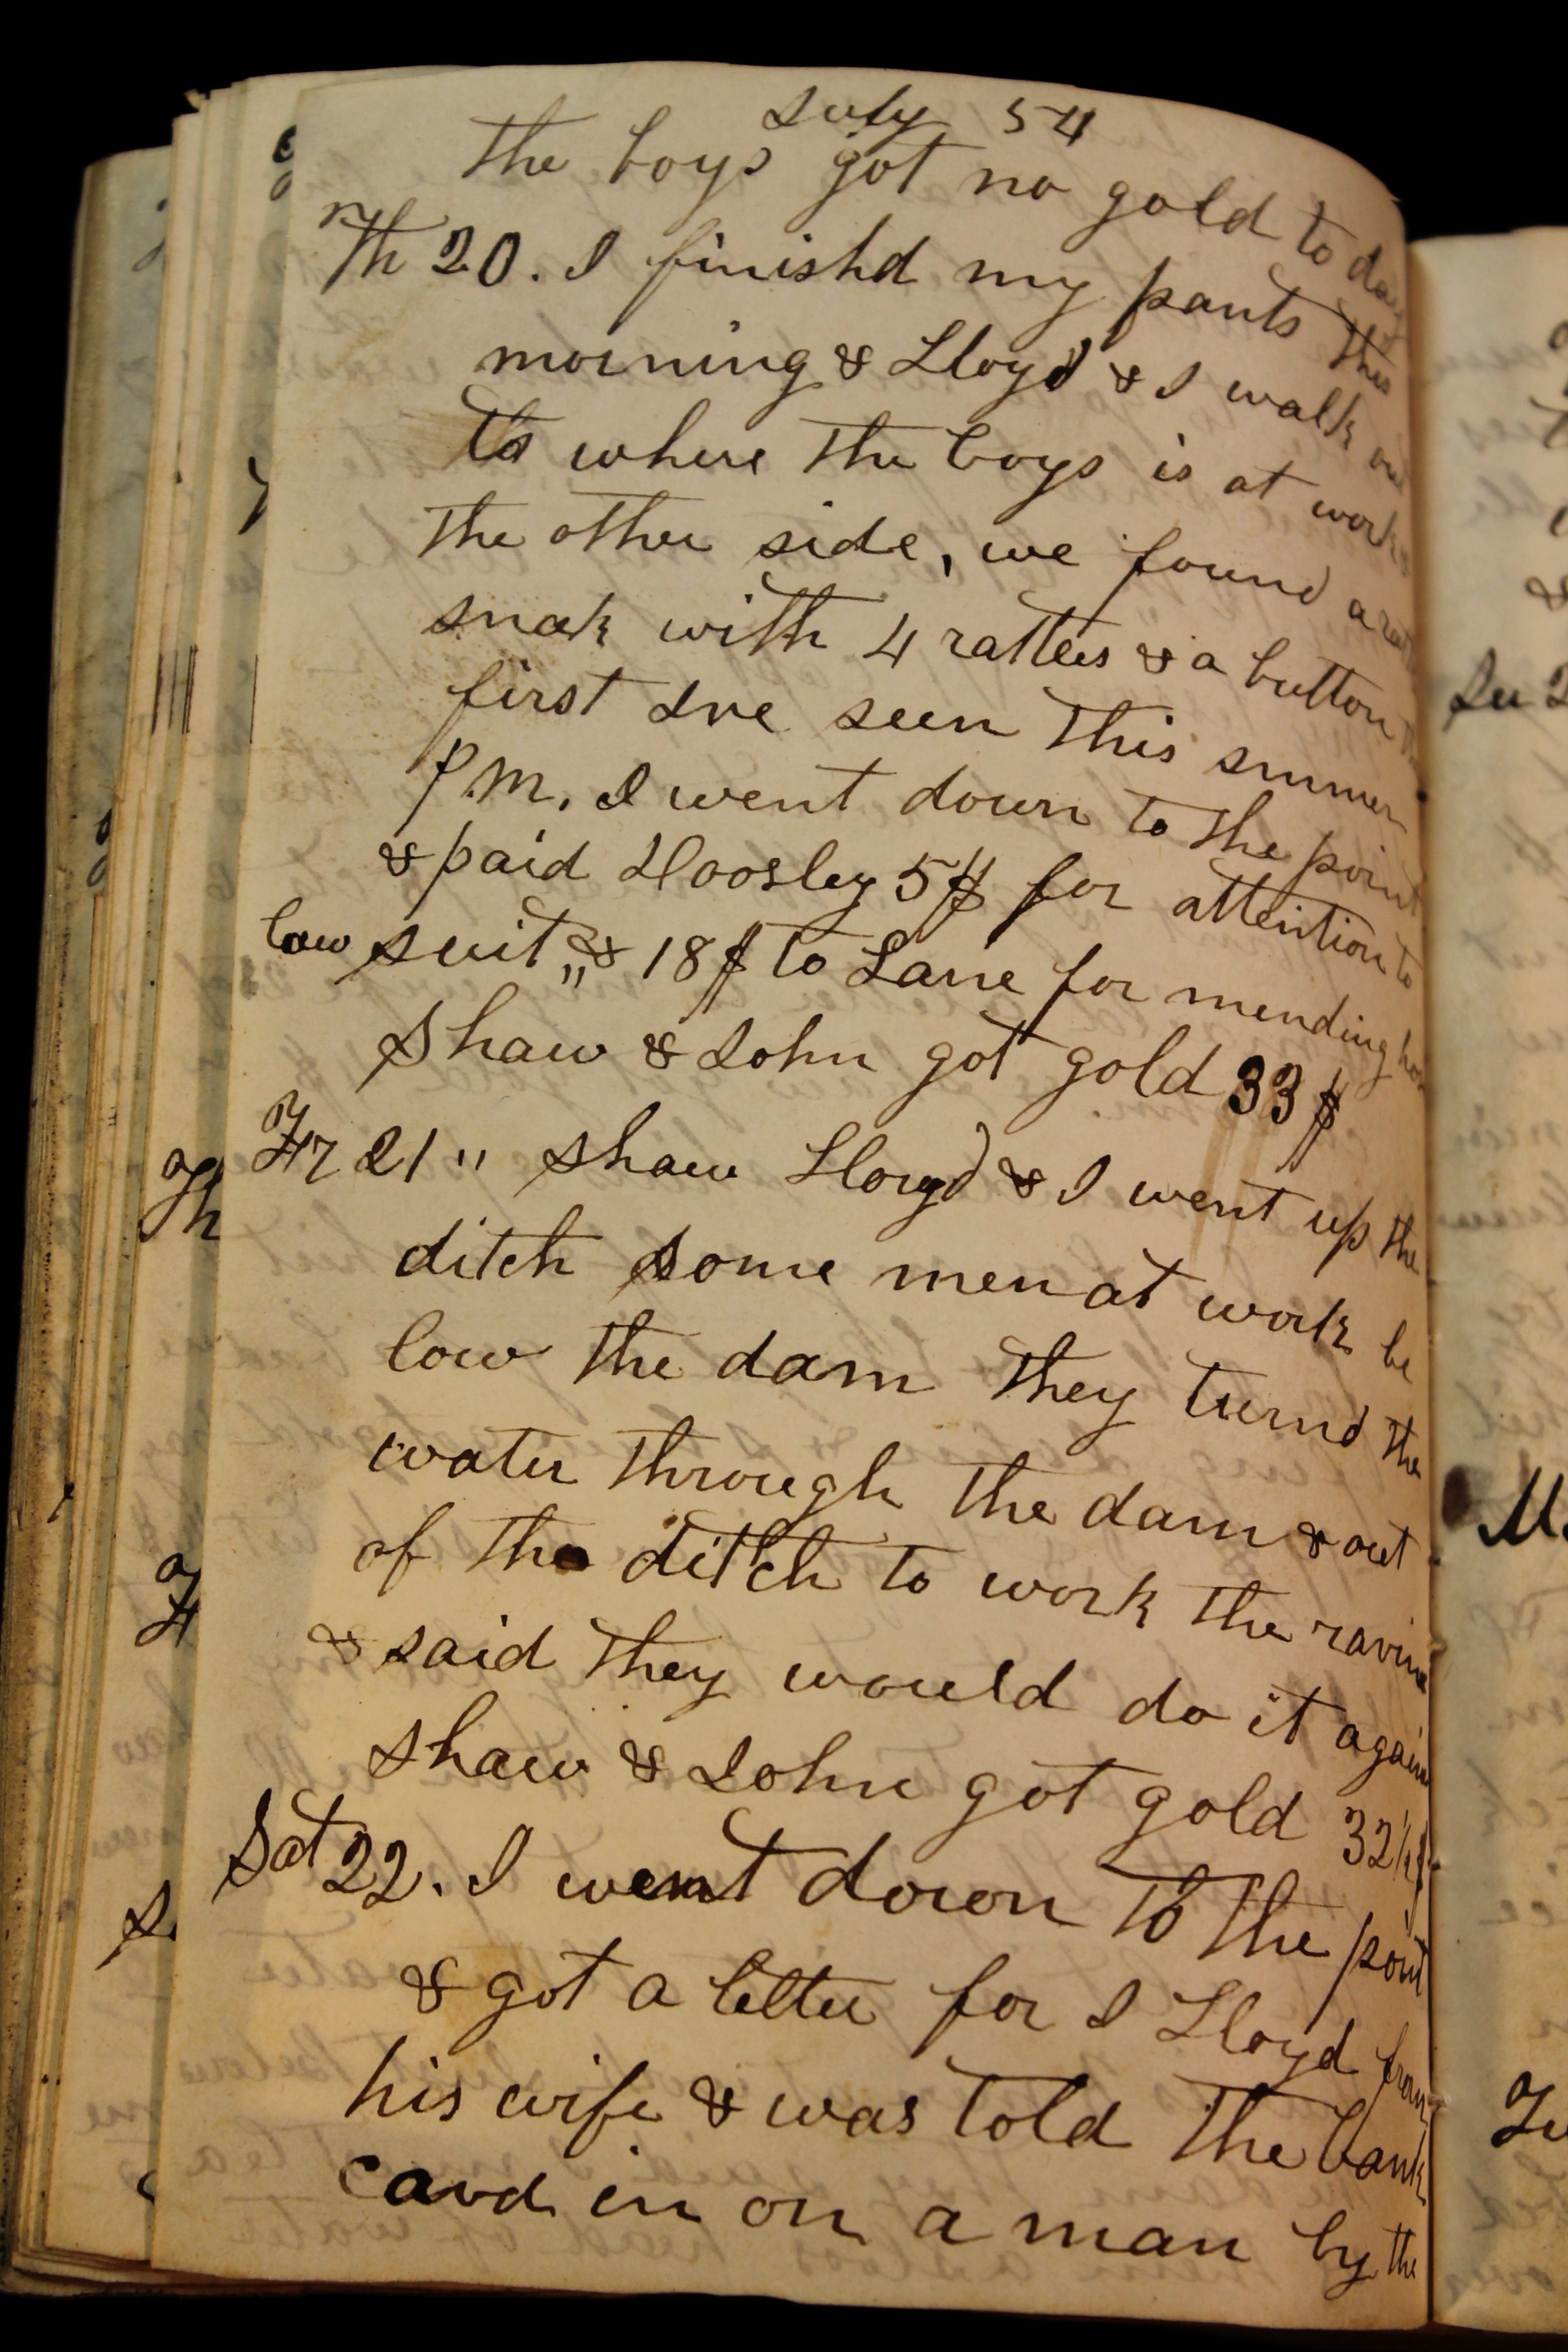 July 54
the boys got no gold to day
Th 20. I finishd my pants this
morning & Lloyd & I walk
to where the boys is at work
the other side, we found a
snak with 4 rattles & a button
first Ive seen this summer
P.M. I went down to the point
& paid Hoosley 5$ for attention to
law suit,, & 18$ to Lane for mending
Shaw & John got gold 33$
Fr 21 " Shaw Lloyd & I went up the
ditch some men at work be
low the dam they turnd the
water through the dam & out
of the ditch to work the ravine
& said they would do it again
Shaw & John got gold 32½$
Sat 22. I went down to the point
& got a letter for I Lloyd from
his wife & was told the bank
cavd in on a man by the
Th
F
S
Su 2
M
Tu